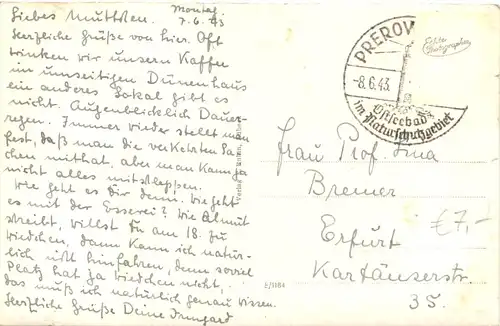 Montag
7.6.43
Liebes Muttchen.
Herzliche Grüße von hier. Oft
trinken wir unsern Kaffee
im umseitigen Dünenhaus
ein anderes Lokal gibt es
nicht. Augenblicklich Dauer-
regen. Immer wieder stellt man
fest, daß man die verkehrten Sa-
chen mithat, aber man kann ja
nicht alles mitschleppen.
Wie geht es Dir denn. Wie geht
es mit der Esserei? Wie Almut
schreibt, willst Du am 18. zu
Wiedchen, dann kann ich natür-
lich nicht hinfahren, denn soviel
Platz hat ja Wiedchen nicht,
das muß ich natürlich genau wissen.
Herzliche Grüße Deine Irmgard
PREROW
-8.6.43
Ostseebad
im Naturschutzgebiet
Echte
Photographie
Frau Prof. Ima
Bremer
Erfurt
Kartäuserstr
35.
€7,-